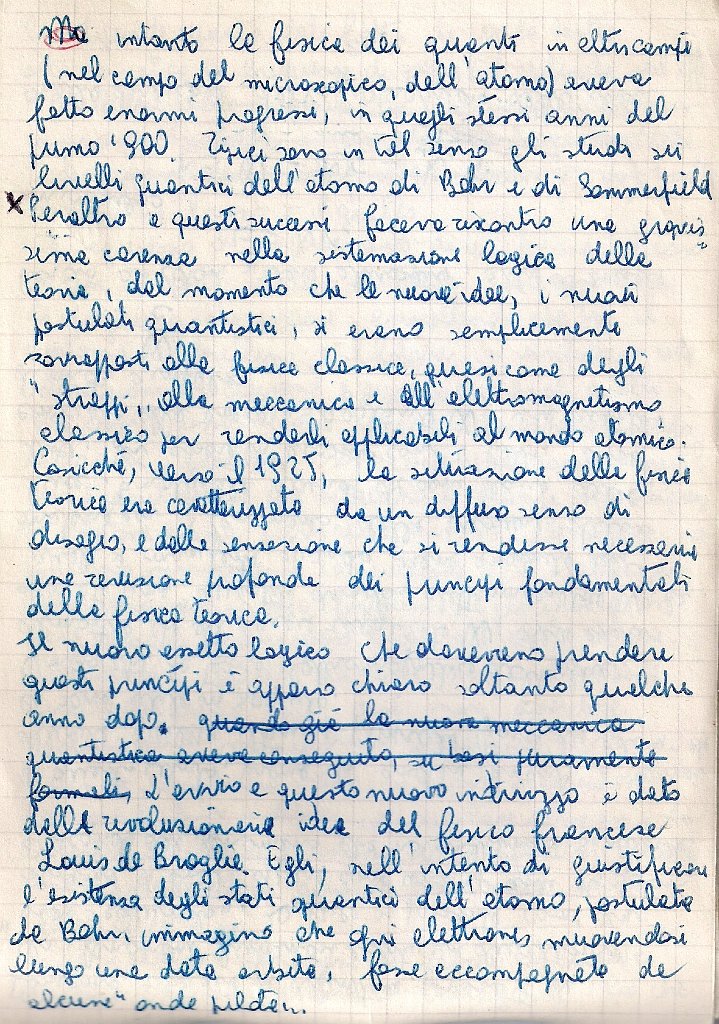 Ma intanto la fisica dei quanti in altri campi
(nel campo del microscopico, dell'atomo) aveva
fatto enormi progressi, in quegli stessi anni del
primo '900. Tipici sono in tal senso gli studi sui
livelli quantici dell'atomo di Bohr e di Sommerfield
x Peraltro a questi successi faceva riscontro una gravis
sima carenza nella sistemazione logica della
teoria, dal momento che le nuove idee, i nuovi
postulati quantistici, si erano semplicemente
sovrapposti alla fisica classica, quasi come degli
"strappi" alla meccanica e all'elettromagnetismo
classico per renderli applicabili al mondo atomico.
Cosicché, verso il 1925, la situazione della fisica
teorica era caratterizzata da un diffuso senso di
disagio, e dalla sensazione che si rendesse necessaria
una revisione profonda dei principi fondamentali
della fisica teorica.
Il nuovo assetto logico che dovevano prendere
questi principi è apparso chiaro soltanto qualche
anno dopo. quando già la nuova meccanica
quantistica aveva conseguito, su basi puramente
formali, L'avvio a questo nuovo indirizzo è dato
dalla rivoluzionaria idea del fisico francese
Louis de Broglie. Egli, nell'intento di giustificare
l'esistenza degli stati quantici dell'atomo, postulata
da Bohr, immaginò che ogni elettrone, muovendosi
lungo una data orbita, fosse accompagnato da
alcune "onde pilota".